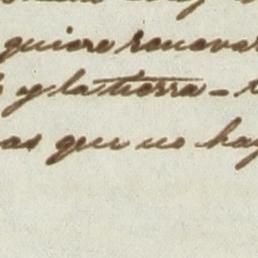 quiere renovar
y la tierra -
que no hay